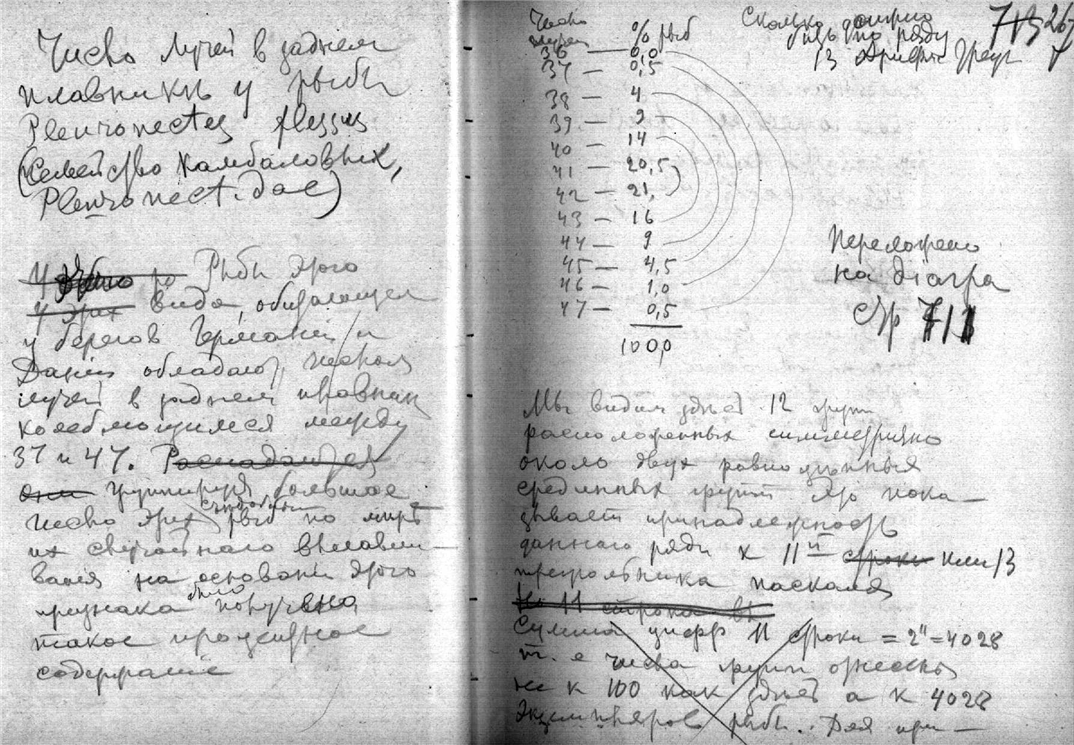 Число лучей в заднем
плавнике у рыбы
Pleuronectes flessus
(семейство камбаловых,
Pleuronectidae)
Рыбы этого
у этих вида, обитающей
у берегов Германии и
Дании обладают, числом
лучей в заднем плавнике
колеблющимся между
37 и 47. Распадается
они группируя большое
число этих рыб по мере
их случайного вылавли-
вания на основании этого
признака было получено
такое процентное
содержание
Число лучей % рыб
36 — 0,0
37 — 0,5
38 — 4
39 — 9
40 — 14
41 — 20,5
42 — 21,
43 — 16
44 — 9
45 — 4,5
46 — 1,0
47 — 0,5
100,0
Сколько
по ряду
13
713 267
Переложено
на диагра
стр 711
Мы видим здесь 12 групп
расположенных симметрично
около двух равноценных
срединных групп Это пока-
зывает принадлежность
данного ряда к 11й строки или 13
треугольника паскаля
на 11 строка
Сумма цифр 11 строки = 2¹¹ = 4028
т. е числа групп отнесены
не к 100 как здесь а к 4028
экземпляров рыбы. Для при-